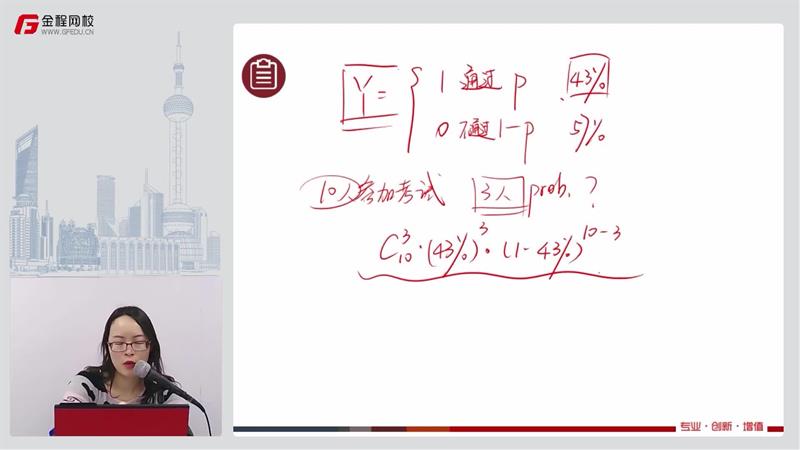 金程网校
WWW.GFEDU.CN
Y= { 1 通过 p 43%
0 不通过 1-p 57%
10人参加考试 3人 prob. ?
C₁₀³·(43%)³·(1-43%)¹⁰⁻³
专业·创新·增值